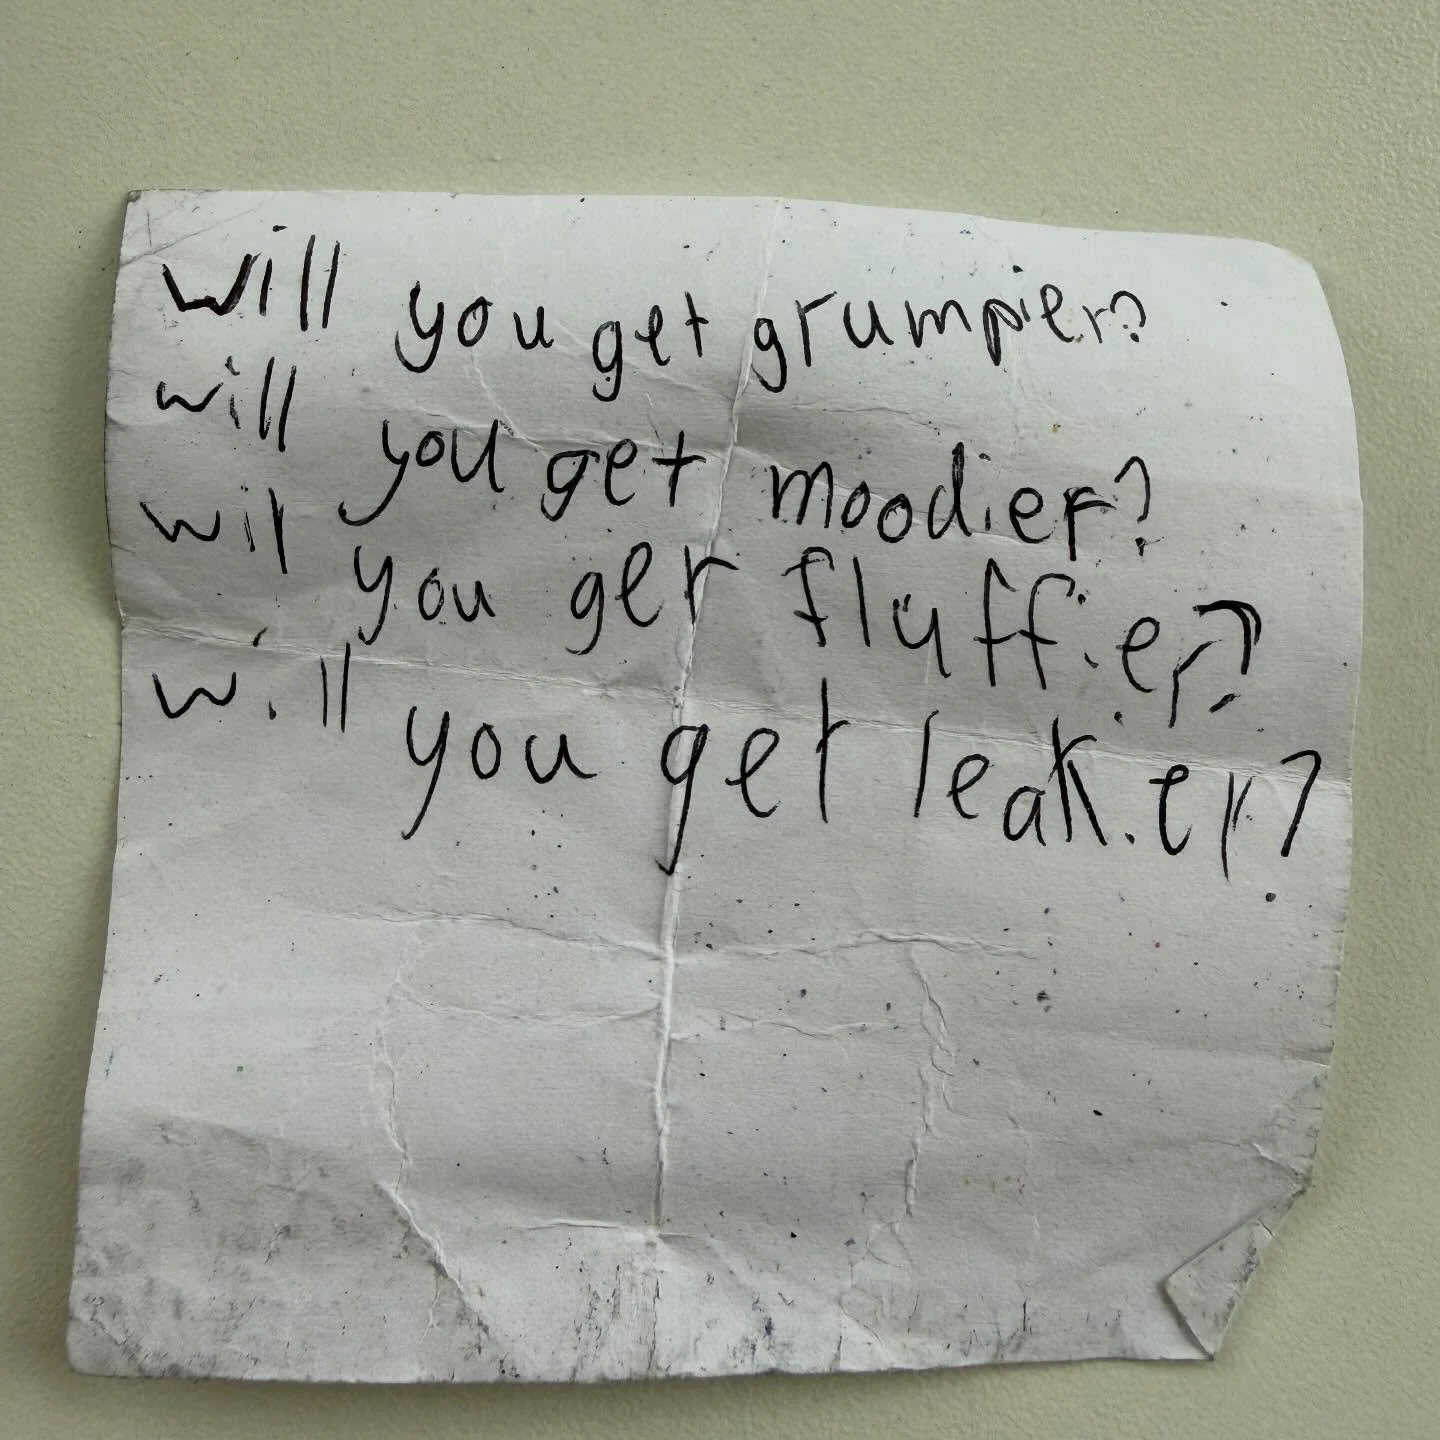 will you get grumpier?
will you get moodier?
will you get fluffier?
will you get leakier?